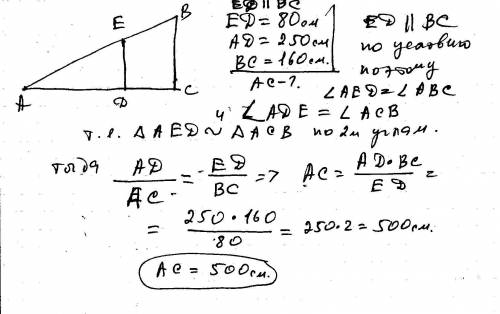 ED || BC
ED = 80 см
AD = 250 см
BC = 160 см.
AC - ?
ED || BC
по условию
поэтому
∠AED = ∠ABC
и ∠ADE = ∠ACB
т.е. △AED ~ △ACB по 2м углам.
E
B
A
D
C
тогда AD/AC = ED/BC => AC = AD·BC/ED =
= 250·160/80 = 250·2 = 500 см.
AC = 500 см.